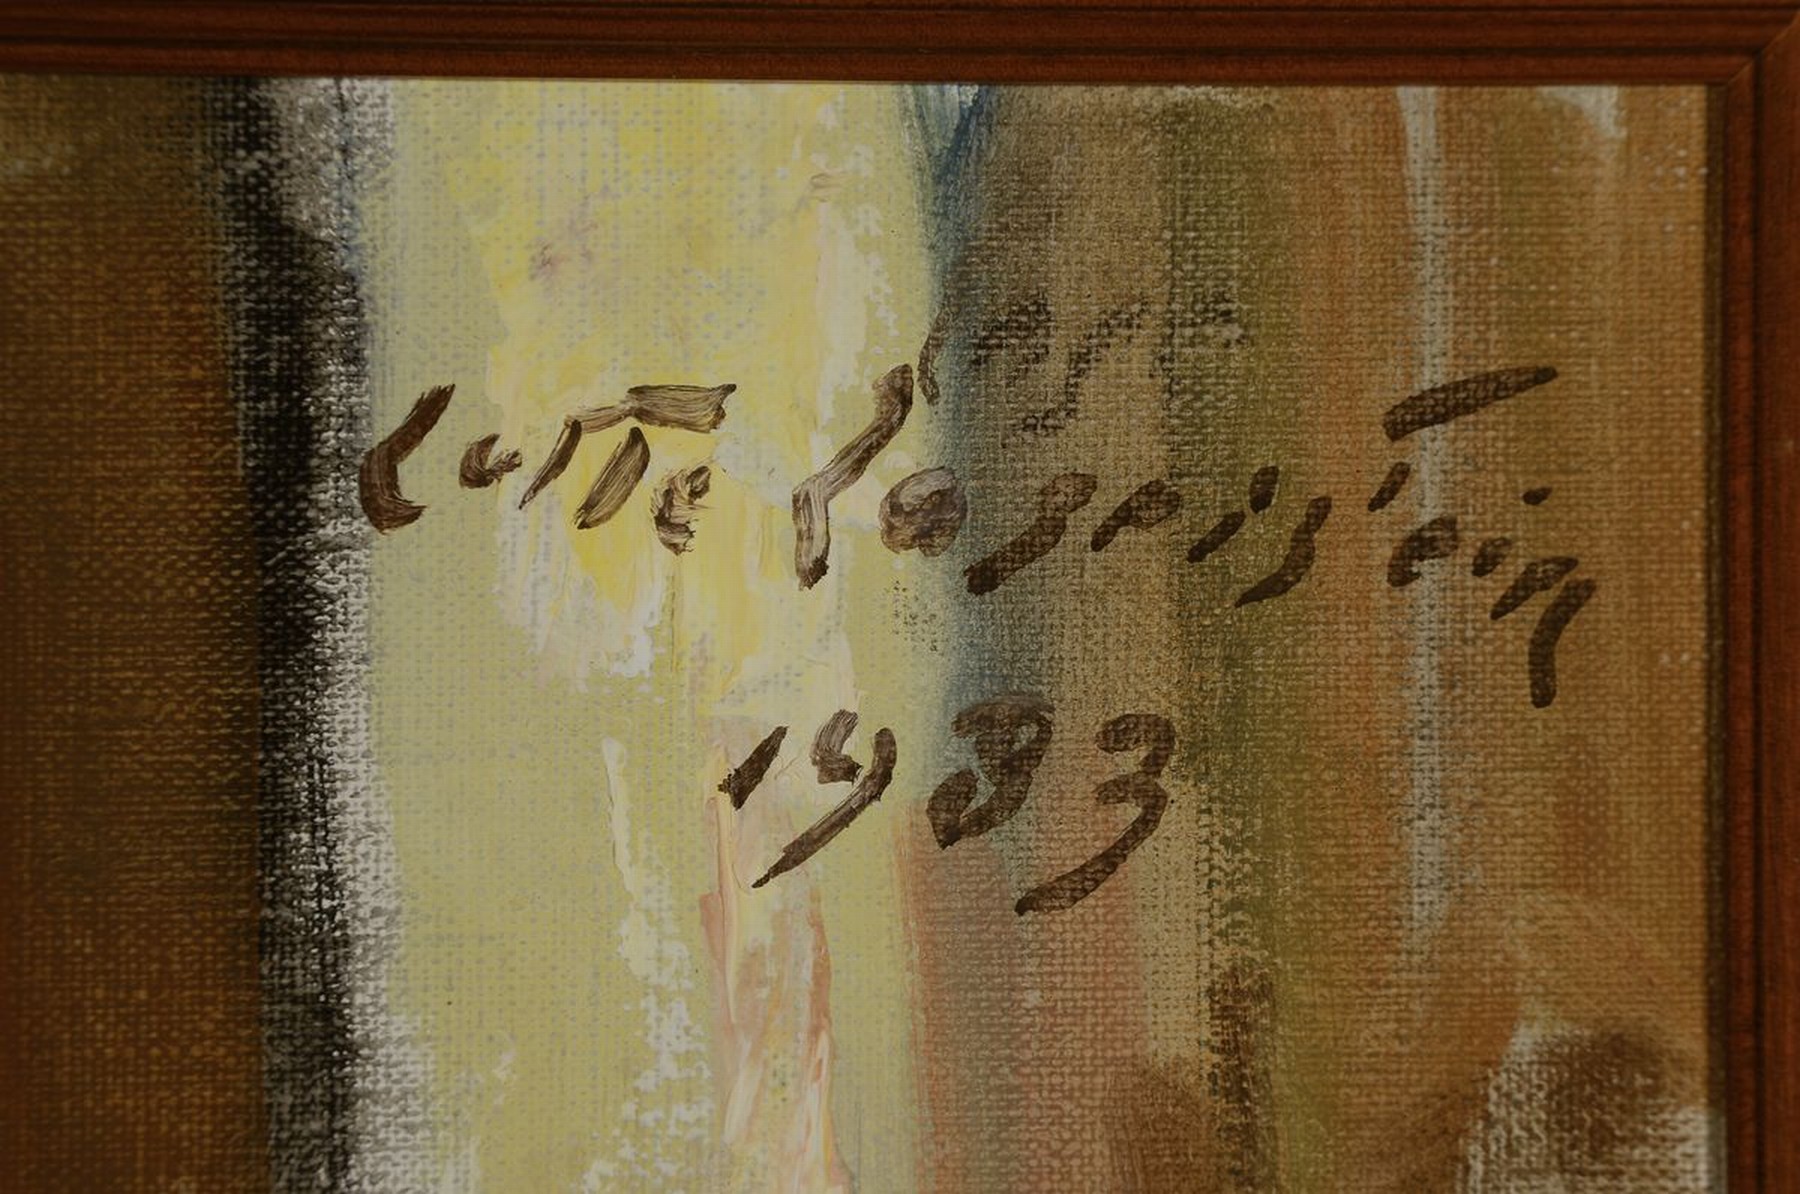 Lotte Laserstein
1983